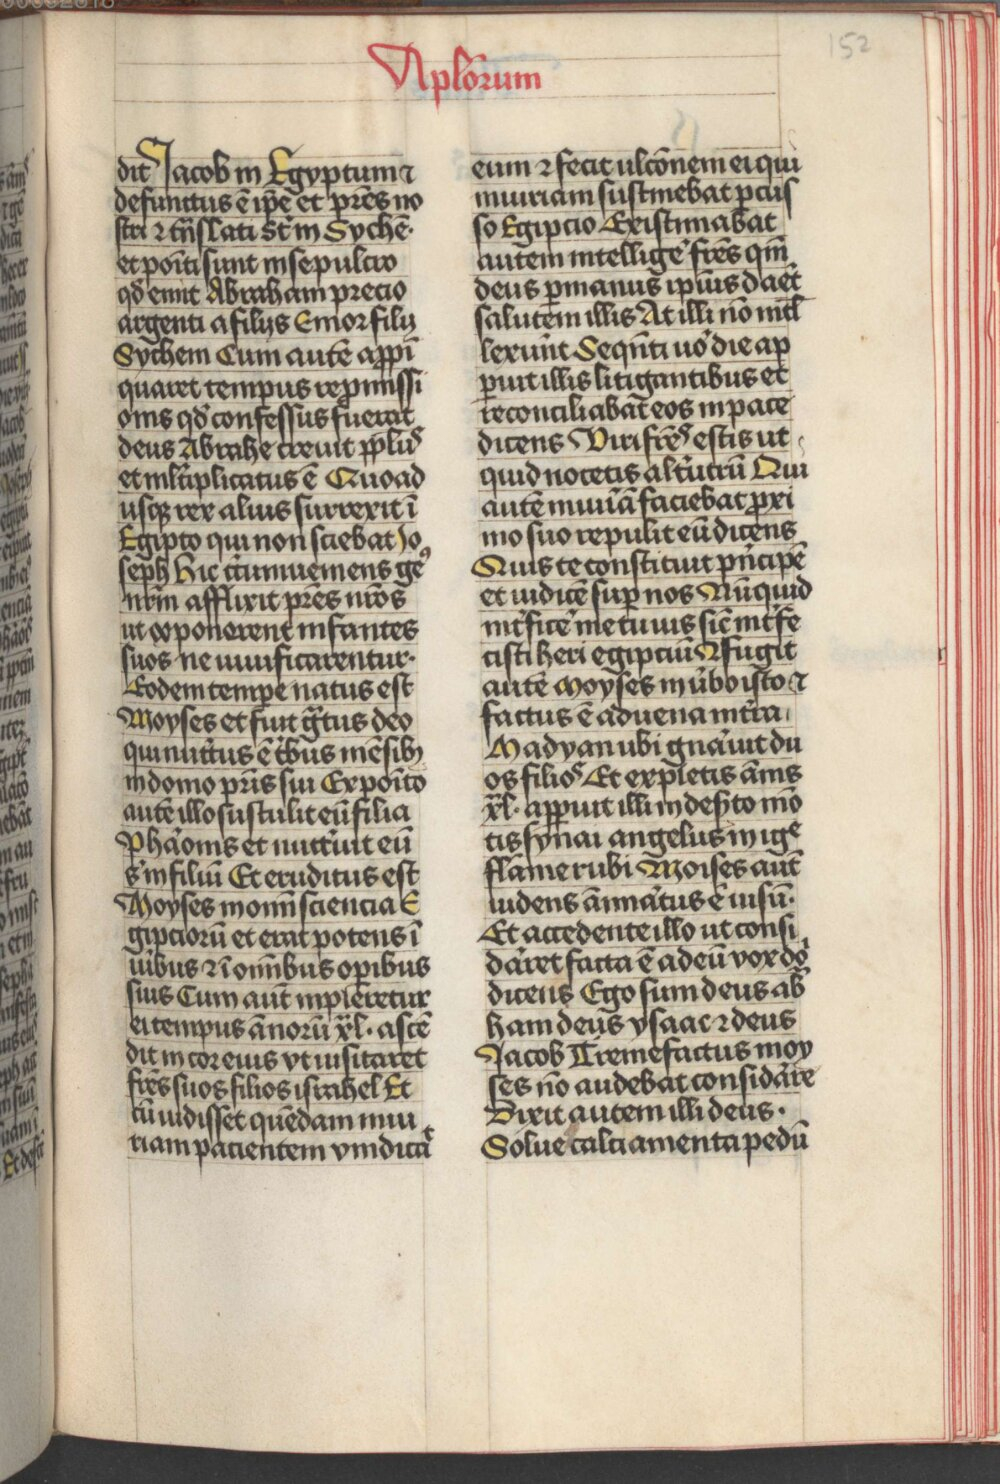 Apl̄orum
152
dit Jacob in Egyptum ⁊
defunctus ē ip̄e et pr̄es no
stri ⁊ tn̄slati st̄ in Sychē·
et poīti sunt in sepulcro
qd̄ emit Abraham precio
argenti a filijs Emor filij
Sychem Cum autē app̄i
quaret tempus rep̄missi
oīns qd̄ confessus fuerat
deus Abrahe creuit pp̄lus
et ml̄tiplicatus ē Quoad
usq; rex alius surrexit ī
Egipto qui non sciebat Jo
seph Hic circumueniens ge
nus nr̄m afflixit pr̄es nr̄os
ut exponerent infantes
suos ne uiuificarentur·
Eodem tempē natus est
Moyses et fuit gr̄tus deo
qui nutritus ē tribus mēsib;
in domo pr̄is sui Expoīto
autē illo sustulit eū filia
Pharaonis et nutriuit eū
s̄ in filiū Et eruditus est
Moyses in omī sciencia E
gipciorū et erat potens ī
u̇bis ⁊ ī om̄ibus op̄ibus
suis Cum aut̄ impleretur
ei tempus ānorū xl· ascē
dit in cor eius vt uisitaret
fr̄es suos filios israhel Et
cū uidisset quēdam iniu
riam pacientem vindicat
eum ⁊ fecit ulcōnem ei qui
iniuriam sustinebat p̄cus
so Egipcio Existimabat
autem intellige fr̄es qm̄
deus p̄ manus ip̄ius daet
salutem illis At illi nō intl
lexunt Seqn̄ti uo die ap
paruit illis litigantibus et
reconciliabat eos in pace
dicens Viri fr̄es estis ut
quid nocetis altrutrū Qui
autē iniuiā faciebat proxi
mo suo repulit eū dicens
Quis te constituit pn̄cipē
et iudicē sup̄ nos Nūquid
int̄fice me tu uis sic̄ int̄fe
cisti heri egipciū ⁊ fugit
autē Moyses in ūbo isto ⁊
factus ē aduena in tr̄a
Madyan ubi gn̄auit du
os filios Et expletis ānis
xl· appuit illi in deserto mō
tis synai angelus in ige
flāme rubi Moises autē
uidens āmiratus ē uisū·
Et accedente illo ut consi
daret facta ē ad eū vox do
dicens Ego sum deus ab
ham deus ysaac ⁊ deus
Jacob Tremefactus moy
ses nō audebat considare
Dixit autem illi deus·
Solue calciamenta pedū